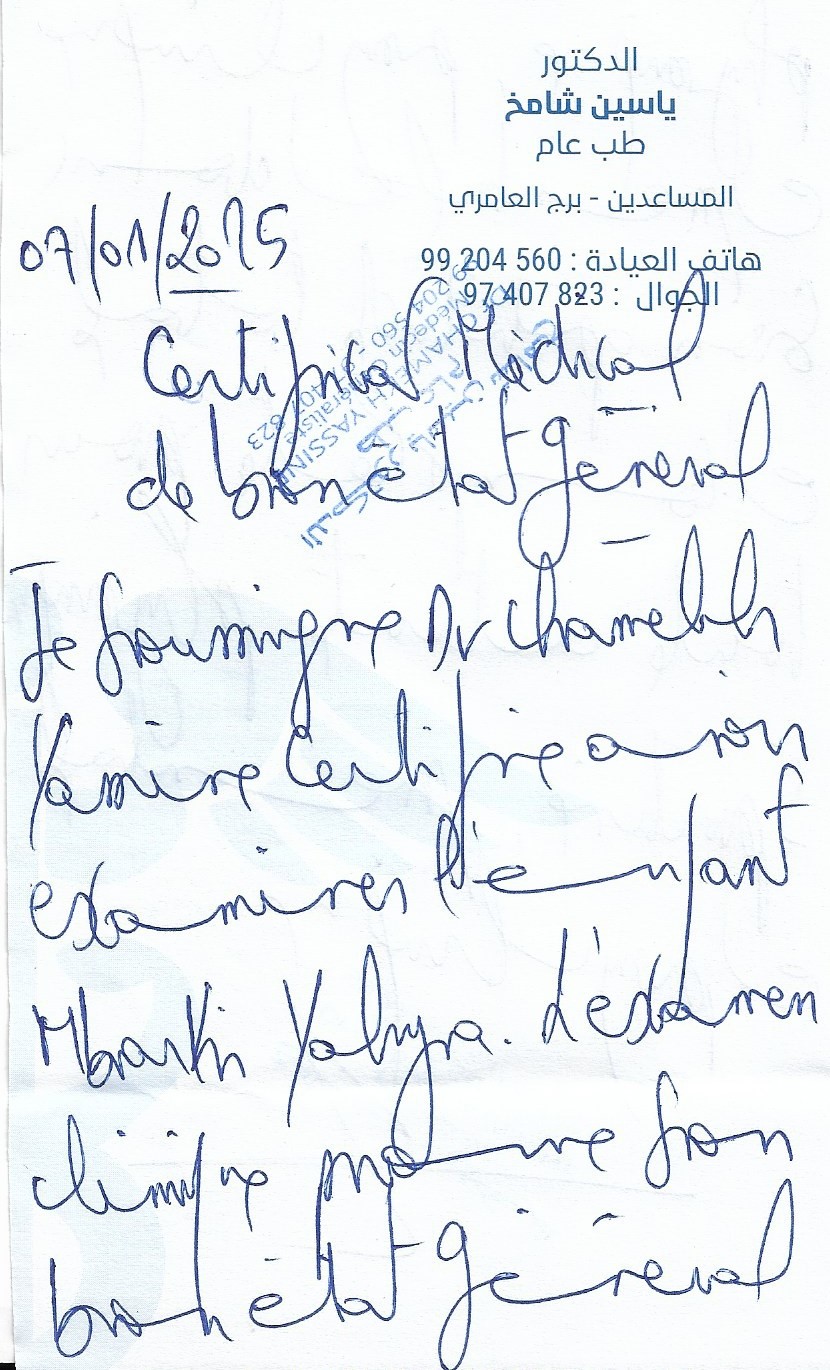 الدكتور
ياسين شامخ
طب عام
المساعدين - برج العامري
هاتف العيادة : 560 204 99
الجوال : 823 407 97
07/01/2025
Certifical Médical
de bon état général
Je soussigne Dr Chamekh
Yassine Certifie avoir
examiner l'enfant
Mbarki Yahya. L'examen
clinique montre son
bon état général
الدكتور ياسين شامخ
CHAMEKH YASSINE
Médecin Généraliste